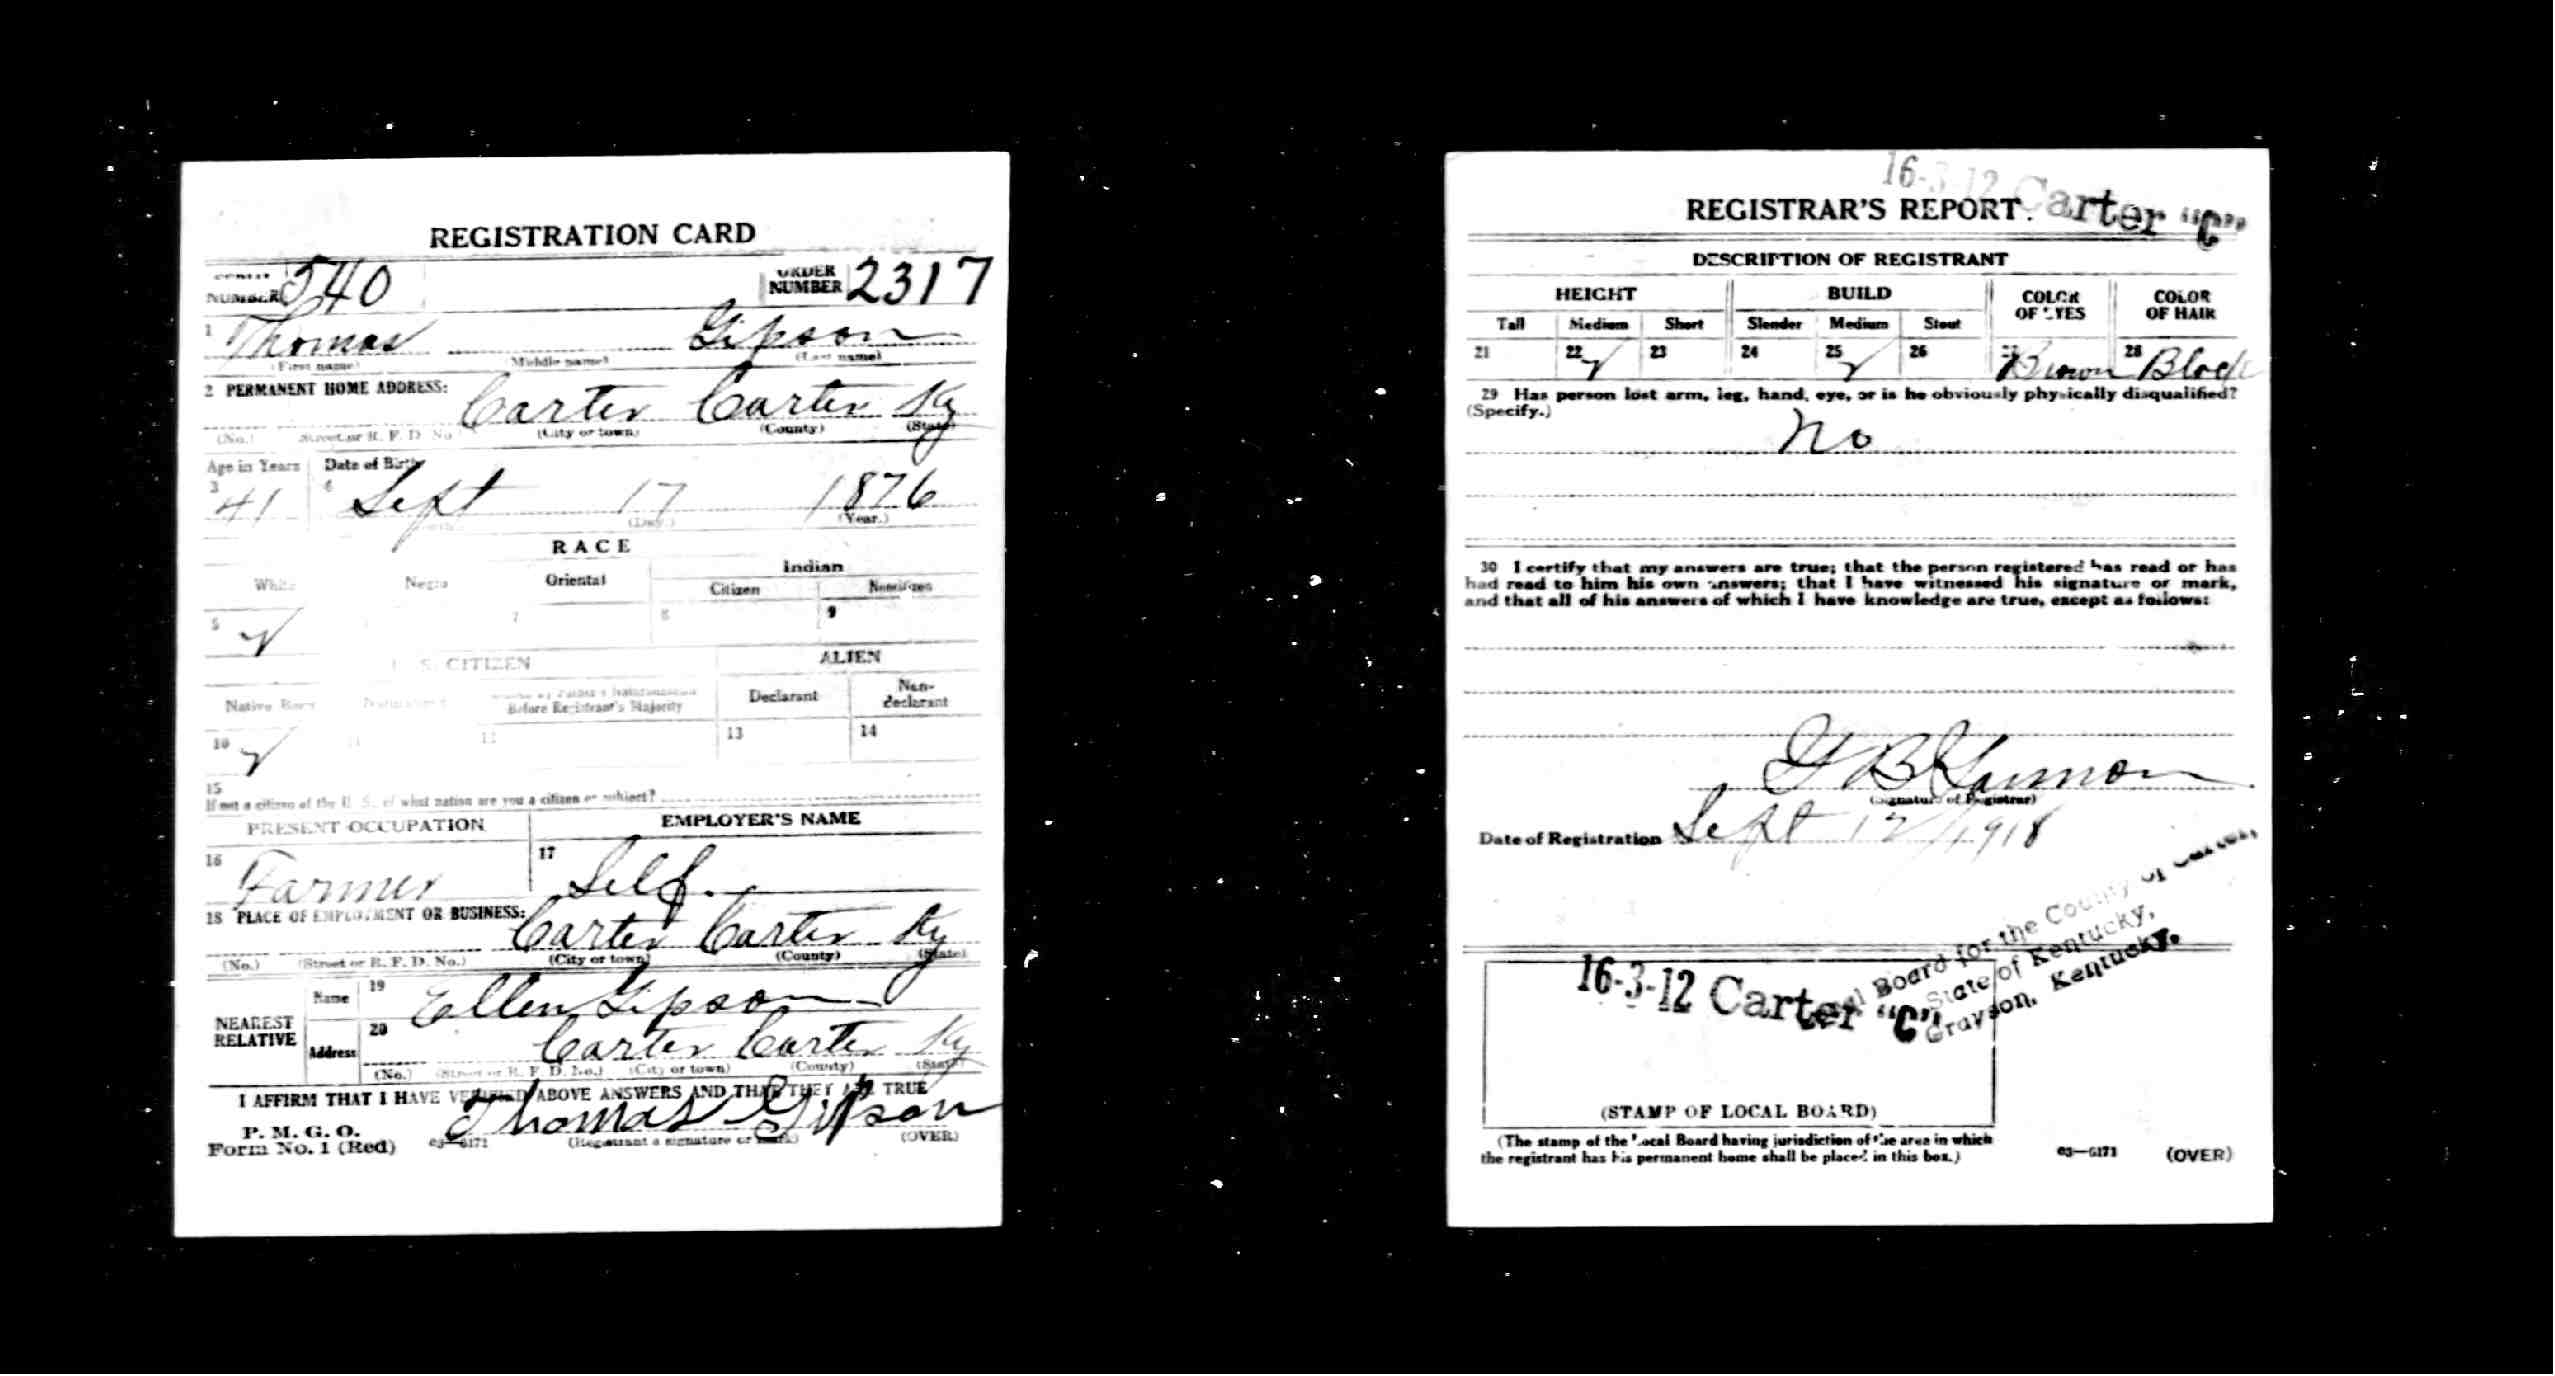 REGISTRATION CARD
NUMBER 540 ORDER NUMBER 2317
1 Thomas Gipson
(First name) Middle name) (Last name)
2 PERMANENT HOME ADDRESS: Carter Carter Ky
(No.) Street or R. F. D. No. (City or town) (County) (State)
Age in Years Date of Birth
3 41 4 Sept 17 1876
(Day.) (Year.)
RACE
White Negro Oriental Indian
Citizen Noncitizen
5 ✓ 7 8 9
U. S. CITIZEN ALIEN
Native Born Naturalized Father's Naturalization Before Registrant's Majority Declarant Non-declarant
10 ✓ 11 12 13 14
15
If not a citizen of the U. S., of what nation are you a citizen or subject?
PRESENT OCCUPATION EMPLOYER'S NAME
16 Farmer 17 Self.
18 PLACE OF EMPLOYMENT OR BUSINESS:
Carter Carter Ky
(No.) (Street or R. F. D. No.) (City or town) (County) (State)
NEAREST RELATIVE Name 19 Ellen Gipson
Address 20 Carter Carter Ky
(No.) (Street or R. F. D. No.) (City or town) (County) (State)
I AFFIRM THAT I HAVE VERIFIED ABOVE ANSWERS AND THAT THEY ARE TRUE
P. M. G. O.
Form No. 1 (Red) 03—6171 Thomas Gipson
(Registrant's signature or mark) (OVER)
16-3-12 Carter "C"
REGISTRAR'S REPORT
DESCRIPTION OF REGISTRANT
HEIGHT BUILD COLOR OF EYES COLOR OF HAIR
Tall Medium Short Slender Medium Stout
21 22 ✓ 23 24 25 ✓ 26 27 Brown 28 Black
29 Has person lost arm, leg, hand, eye, or is he obviously physically disqualified?
(Specify.)
No
30 I certify that my answers are true; that the person registered has read or has
had read to him his own answers; that I have witnessed his signature or mark,
and that all of his answers of which I have knowledge are true, except as follows:
(Signature of Registrar)
Date of Registration Sept 12/1918
Local Board for the County of Carter,
State of Kentucky,
Grayson, Kentucky.
16-3-12 Carter "C"
(STAMP OF LOCAL BOARD)
(The stamp of the Local Board having jurisdiction of the area in which
the registrant has his permanent home shall be placed in this box.)
03—6171 (OVER)